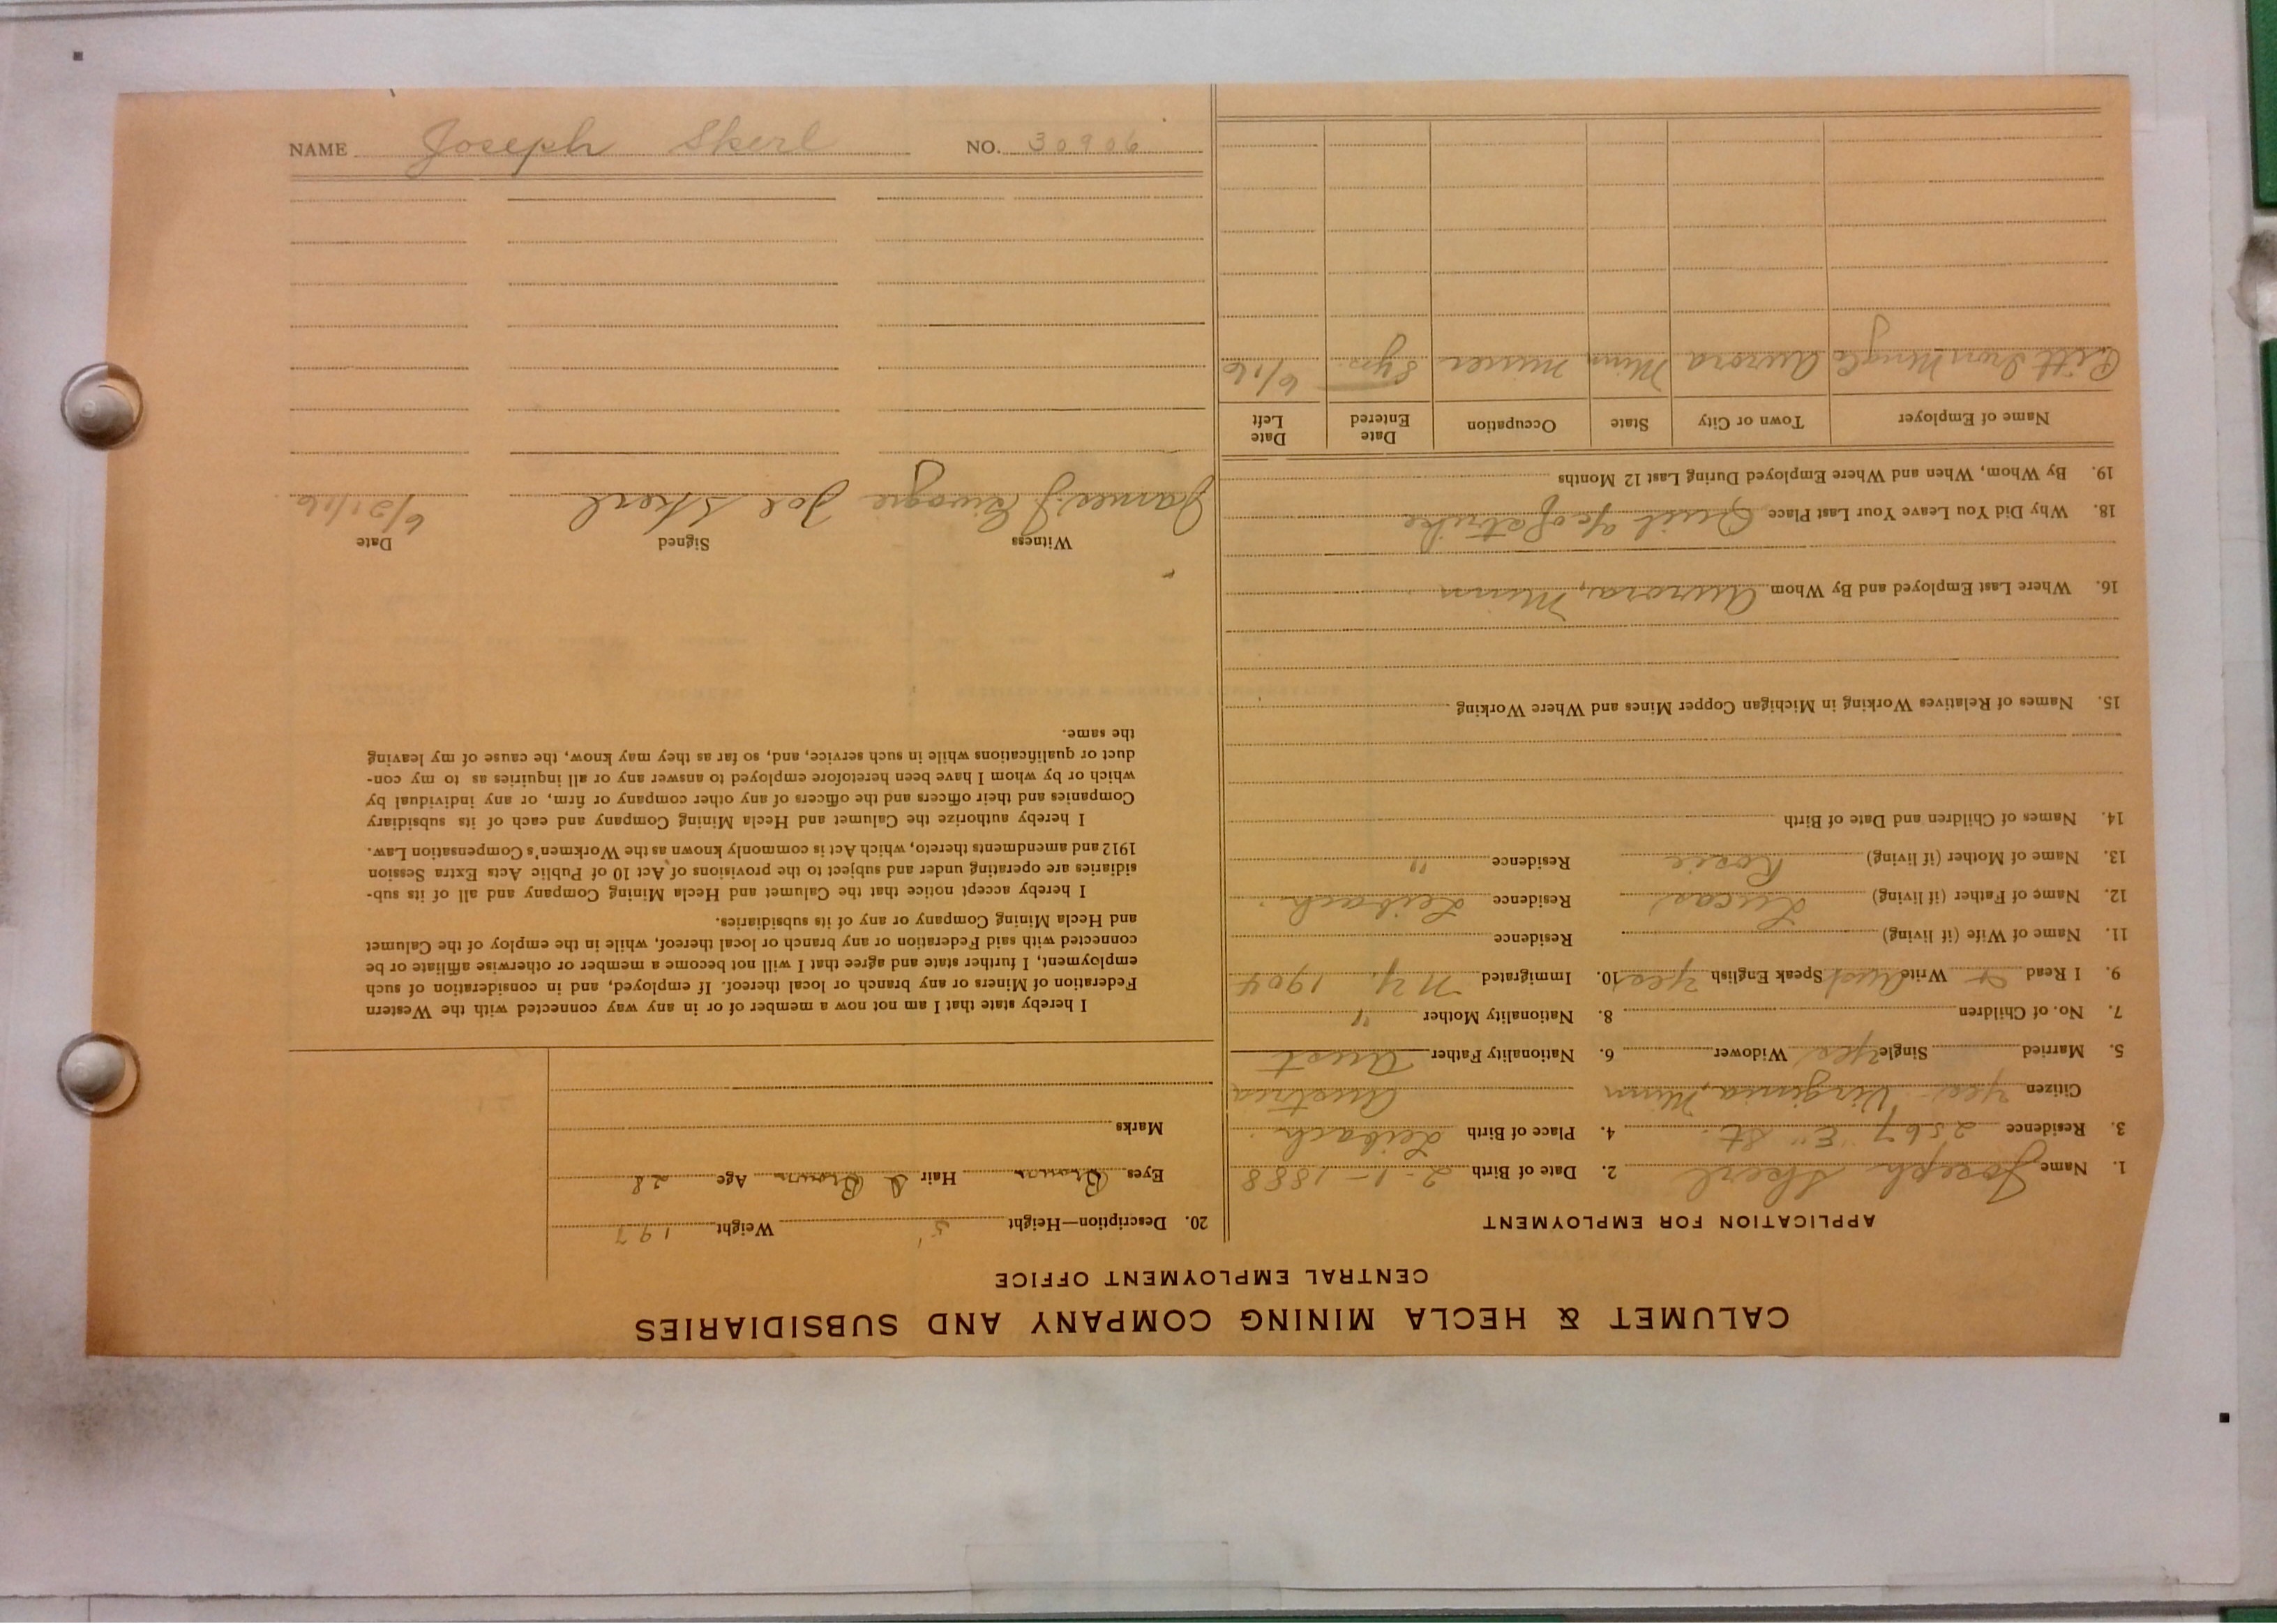 CALUMET & HECLA MINING COMPANY AND SUBSIDIARIES
CENTRAL EMPLOYMENT OFFICE
APPLICATION FOR EMPLOYMENT
1. Name Joseph Skerl 2. Date of Birth 2-1-1888
3. Residence 2567 "E" St. 4. Place of Birth Leibach.
Citizen yes - Virginia, Minn Austria
5. Married Single yes Widower 6. Nationality Father Aust
7. No. of Children 8. Nationality Mother "
9. I Read & Write Aust Speak English yes 10. Immigrated N.Y. 1904
11. Name of Wife (if living) Residence
12. Name of Father (if living) Lucas Residence Leibach.
13. Name of Mother (if living) Rosie Residence "
14. Names of Children and Date of Birth
15. Names of Relatives Working in Michigan Copper Mines and Where Working
16. Where Last Employed and By Whom Aurora, Minn
18. Why Did You Leave Your Last Place Quit a/c of strike
19. By Whom, When and Where Employed During Last 12 Months
Name of Employer Town or City State Occupation Date Entered Date Left
Pitt Iron Aurora Minn miner 8 yrs. 6/16
20. Description—Height 5' Weight 197
Eyes Brown Hair D Brown Age 28
Marks
I hereby state that I am not now a member of or in any way connected with the Western
Federation of Miners or any branch or local thereof. If employed, and in consideration of such
employment, I further state and agree that I will not become a member or otherwise affiliate or be
connected with said Federation or any branch or local thereof, while in the employ of the Calumet
and Hecla Mining Company or any of its subsidiaries.
I hereby accept notice that the Calumet and Hecla Mining Company and all of its sub-
sidiaries are operating under and subject to the provisions of Act 10 of Public Acts Extra Session
1912 and amendments thereto, which Act is commonly known as the Workmen's Compensation Law.
I hereby authorize the Calumet and Hecla Mining Company and each of its subsidiary
Companies and their officers and the officers of any other company or firm, or any individual by
which or by whom I have been heretofore employed to answer any or all inquiries as to my con-
duct or qualifications while in such service, and, so far as they may know, the cause of my leaving
the same.
Witness Signed Date
James J. Joe Skerl 6/21/16
NAME Joseph Skerl NO. 30906